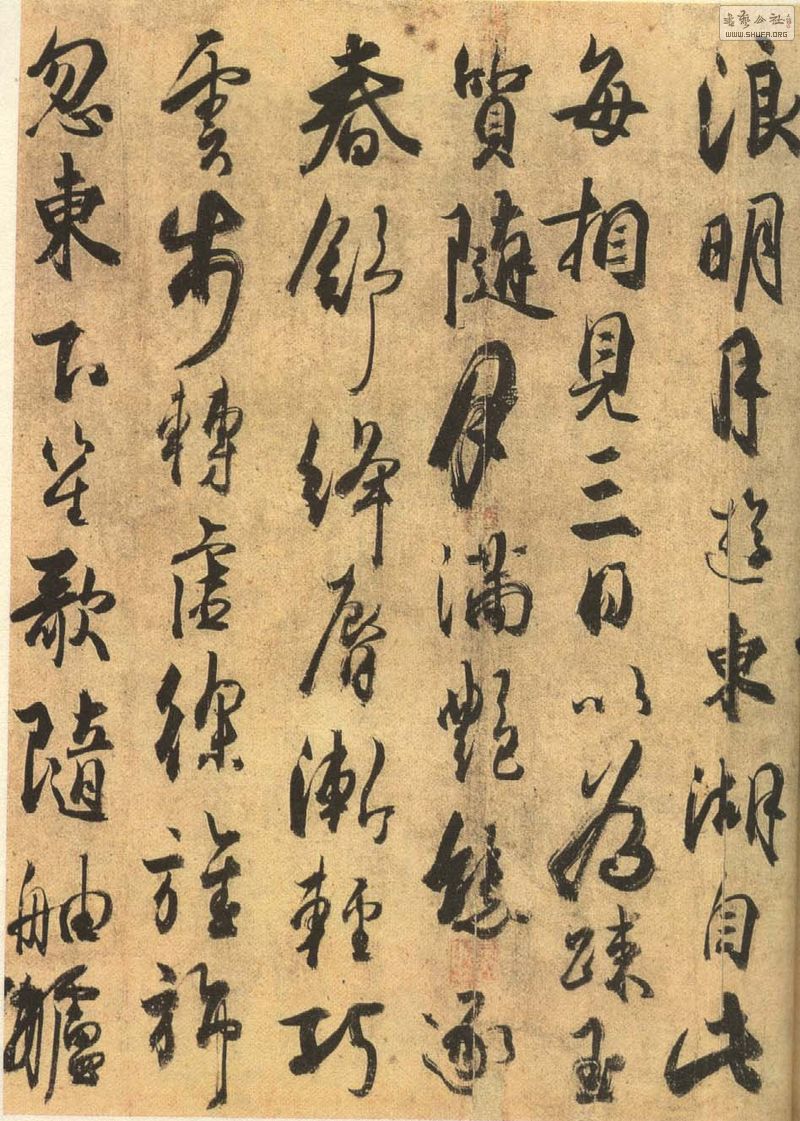 浪明月遊東湖自此
每相見三日以為踈玉
質隨月滿艷態逐
春舒絳脣漸輕巧
雲步轉虛徐旌旆
忽東下笙歌隨舳艫
書藝公社
WWW.SHUFA.ORG